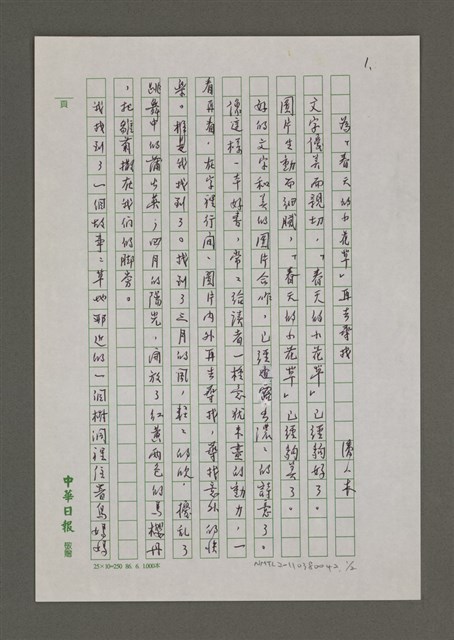 1.
為「春天的小花草」再去尋找
傅人本
文字優美而親切，「春天的小花草」已經夠好了。
圖片生動而細膩，「春天的小花草」已經夠美了。
好的文字和美的圖片合作，已經透露出濃濃的詩意了。
像這樣一本好書，常常給讀者一種意猶未盡的動力，一
看再看，在字裡行間、圖片內外再去尋找，尋找意外的快
樂。於是我找到了。找到了三月的風，輕輕的吹，擾亂了
跳舞中的蒲公英；四月的陽光，開放了紅黃兩色的馬櫻丹
，把雛菊擺在我們的腳旁。
我找到了一個故事：草地那邊的一個樹洞裡住著鳥媽媽
頁
中華日報
稿箋
25×10=250 86. 6. 1000本
NMTL20110380042 1/2